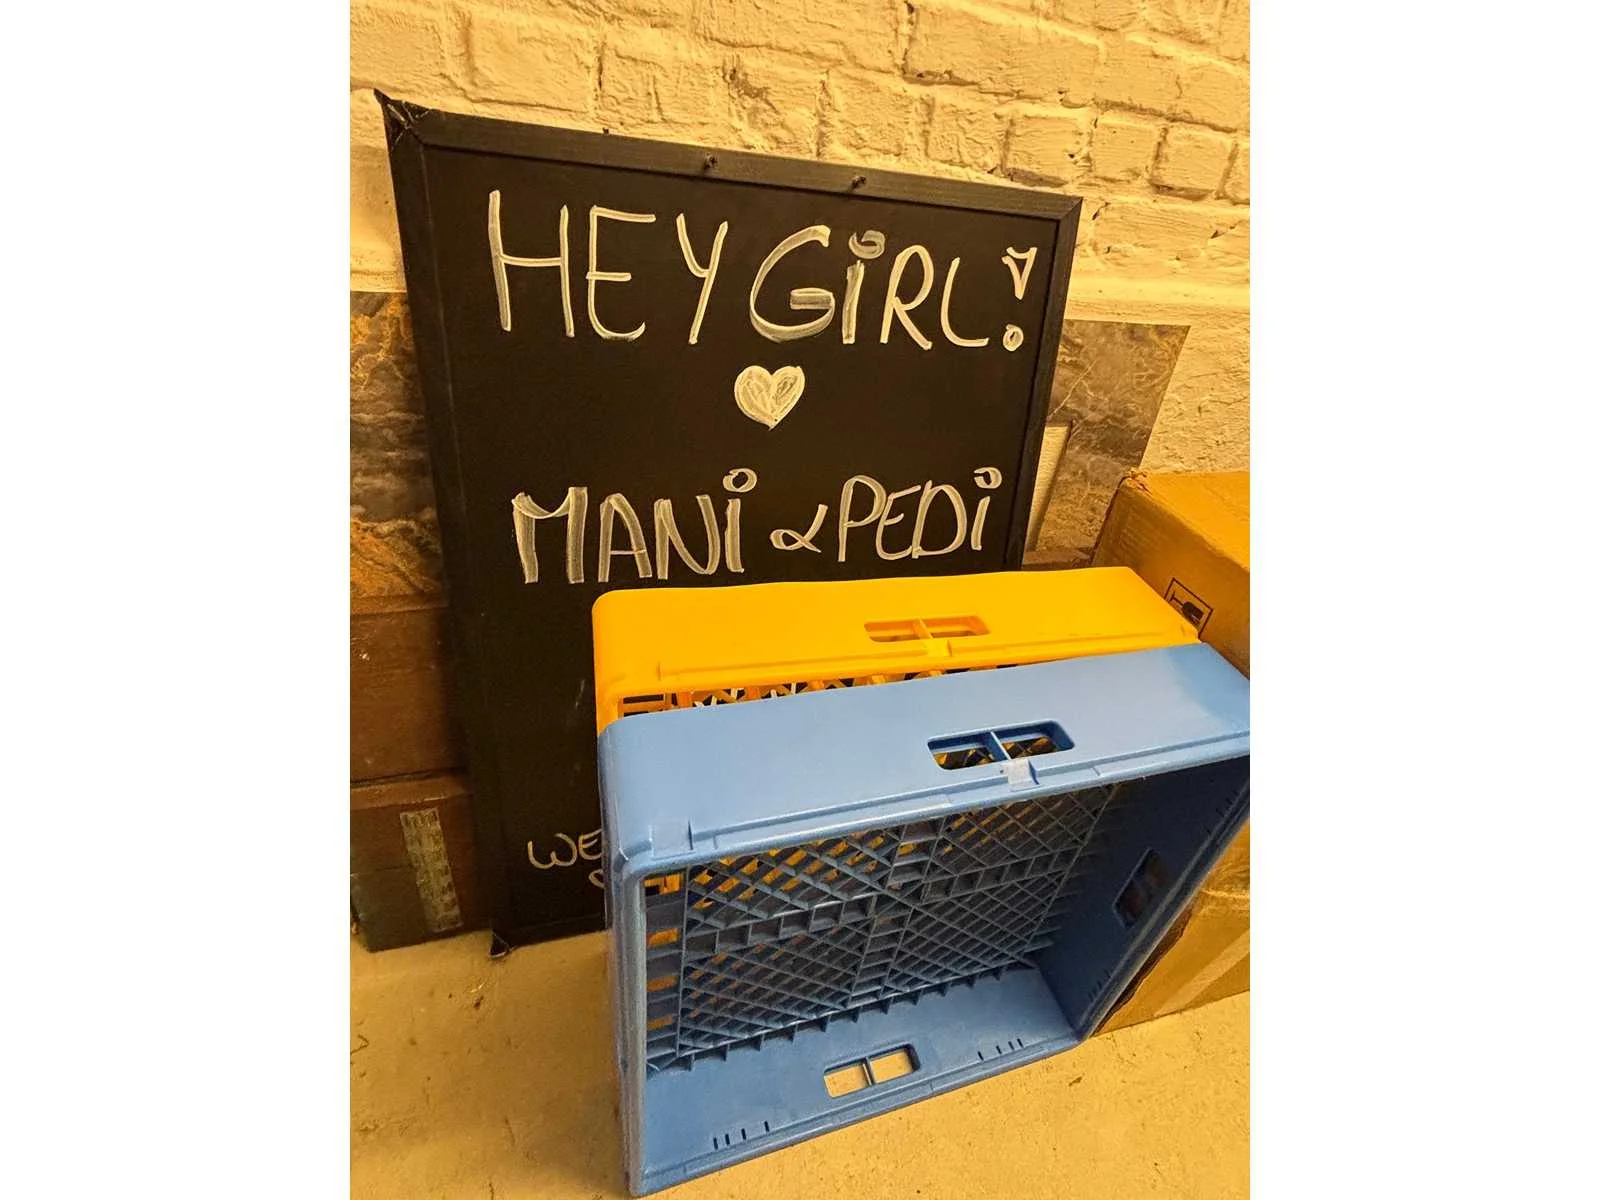 HEY GiRL!
MANi & PEDi
WE